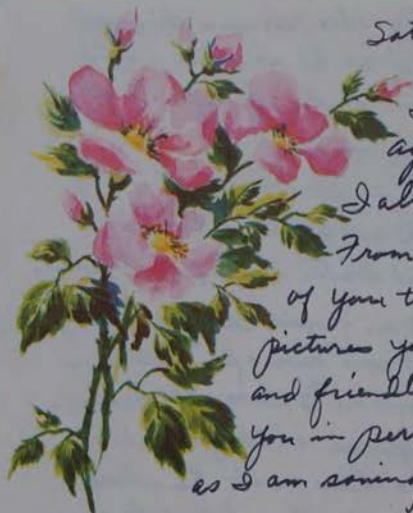 Sat
ag
I al
From
of your t
pictures yo
and friendl
You in per
as I am